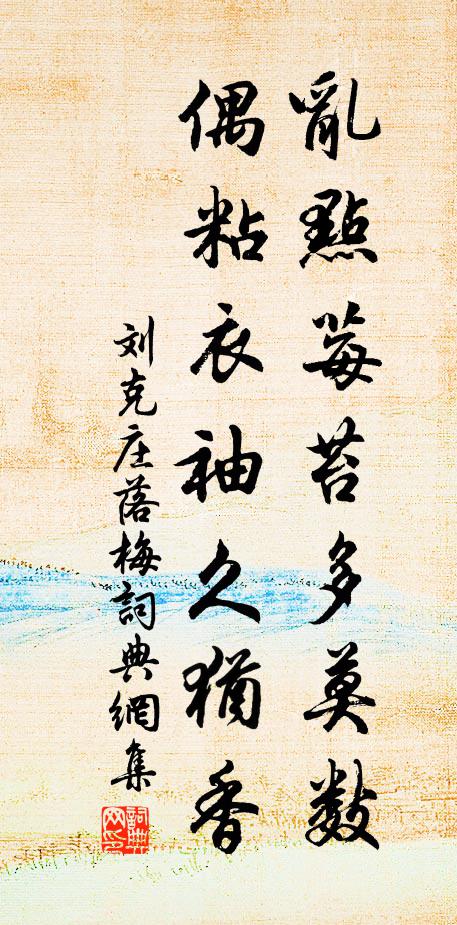 亂點莓苔多莫數
偶粘衣袖久猶香
刘克庄落梅詞典網集
詞典网印